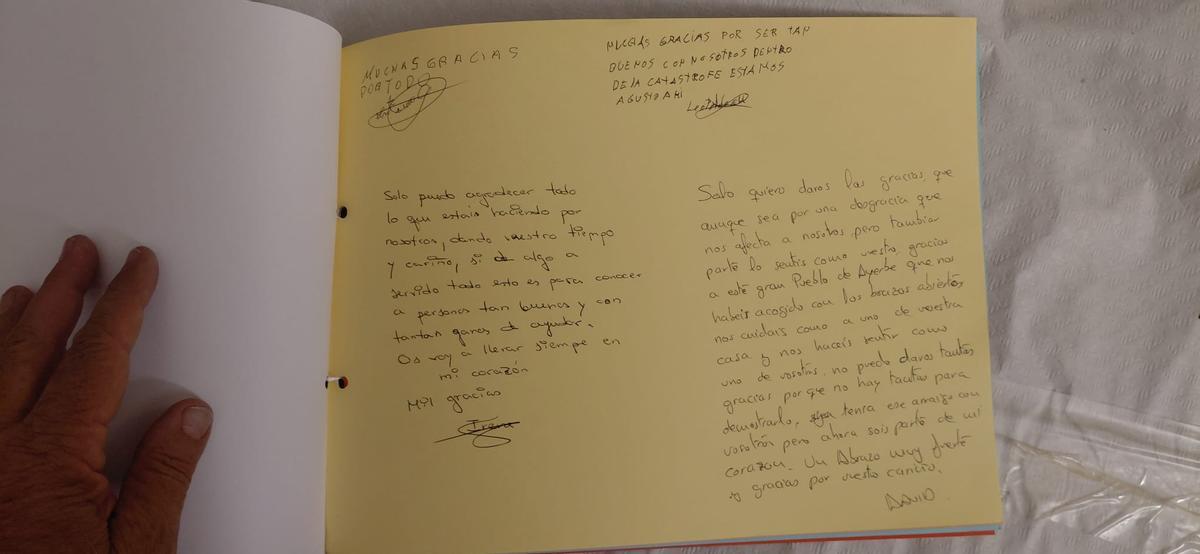 MUCHAS GRACIAS
POR TODO
MUCHAS GRACIAS POR SER TAN
BUENOS CON NOSOTROS DENTRO
DE LA CATASTROFE ESTAMOS
AGUSTO AHI
Solo puedo agradecer todo
lo que estais haciendo por
nosotros, dando vuestro tiempo
y cariño, si de algo a
servido todo esto es para conocer
a personas tan buenas y con
tantas ganas de ayudar.
Os voy a llevar siempe en
mi corazón
Mil gracias
Irene
Solo quiero daros las gracias, que
aunque sea por una desgracia que
nos afecta a nosotros, pero tambien
parte lo sentis como vuestra, gracias
a este gran Pueblo de Ayerbe que nos
habeis acogido con los brazos abiertos,
nos cuidais como a uno de vuestra
casa y nos haceís sentir como
uno de vosotros, no puedo daros tantas
gracias por que no hay tantas para
demostrarlo, tenia ese arraigo con
vosotros pero ahora sois parte de mi
corazon. Un Abrazo muy fuerte
y gracias por vuestro cariño.
DAVID